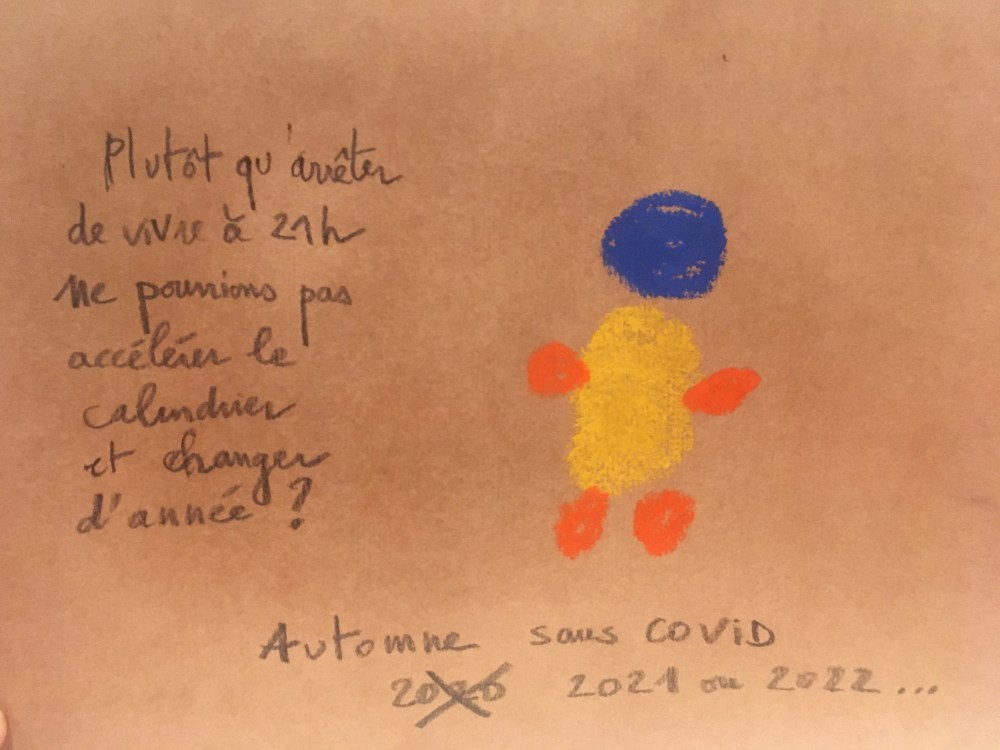 Plutôt qu'arrêter
de vivre à 21h
ne pourrions pas
accélérer le
calendrier
et changer
d'année ?
Automne sans COVID
2020 2021 ou 2022...